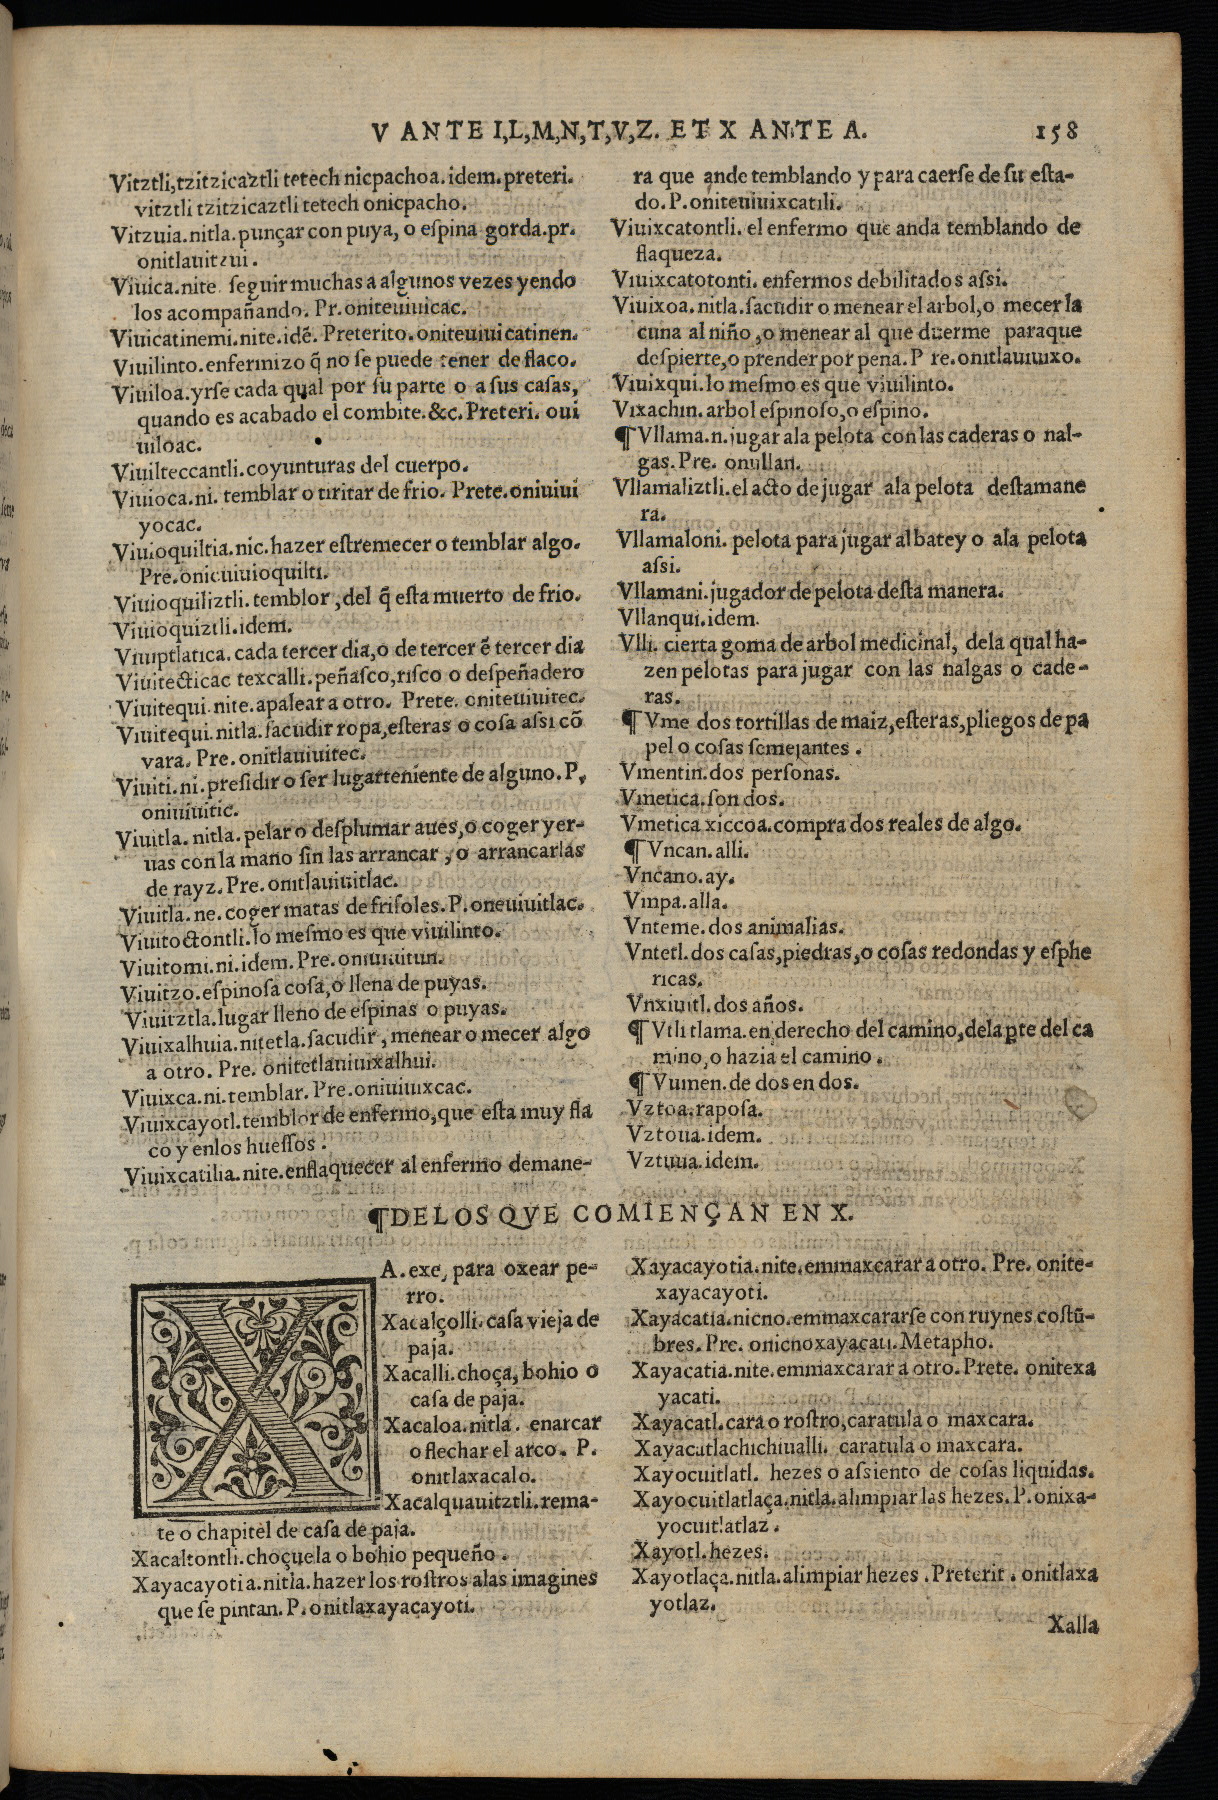 V ANTE I,L,M,N,T,V,Z. ET X ANTE A. 158
Vitztli,tzitzicaztli tetech nicpachoa.idem.preteri.
vitztli tzitzicaztli tetech onicpacho.
Vitzuia.nitla.punçar con puya, o eſpina gorda.pr.
onitlauitzui.
Viuica.nite ſeguir muchas a algunos vezes yendo
los acompañando. Pr.oniteuiuicac.
Viuicatinemi.nite.idē. Preterito.oniteuiuicatinen.
Viuilinto.enfermizo q̄ no ſe puede tener de flaco.
Viuiloa.yrſe cada qual por ſu parte o a sus caſas,
quando es acabado el combite.&c.Preteri. oui
uiloac.
Viuilteccantli.coyunturas del cuerpo.
Viuioca.ni. temblar o tiritar de frio. Prete.oniuiui
yocac.
Viuioquiltia.nic.hazer eſtremecer o temblar algo.
Pre.onicuiuioquilti.
Viuioquiliztli.temblor,del q̄ eſta muerto de frio.
Viuioquiztli.idem.
Viuiptlatica.cada tercer dia,o de tercer ē tercer dia
Viuitecticac texcalli.peñaſco,riſco o deſpeñadero
Viuitequi.nite.apalear a otro. Prete. oniteuiuitec.
Viuitequi.nitla.ſacudir ropa,eſteras o coſa aſsi cō
vara. Pre.onitlauiuitec.
Viuiti.ni.preſidir o ſer lugarteniente de alguno.P,
oniuiuitic.
Viuitla. nitla.pelar o deſplumar aues,o coger yer-
uas con la mano ſin las arrancar, o arrancarlas
de rayz.Pre.onitlauiuitlac.
Viuitla.ne.coger matas de friſoles.P.oneuiuitlac.
Viuitoctontli.lo meſmo es que viuilinto.
Viuitomi.ni.idem.Pre.oniuiuitun.
Viuitzo.eſpinoſa coſa,o llena de puyas.
Viuitztla.lugar lleno de eſpinas o puyas.
Viuixalhuia.nitetla.ſacudir, menear o mecer algo
a otro. Pre. onitetlauiuixalhui.
Viuixca.ni.temblar. Pre.oniuiuixcac.
Viuixcayotl.temblor de enfermo,que eſta muy fla
co y enlos hueſſos.
Viuixcatilia.nite.enflaquecer al enfermo demane-
ra que ande temblando y para caerſe de ſu eſta-
do. P. oniteuiuixcatili.
Viuixcatontli. el enfermo que anda temblando de
flaqueza.
Viuixcatotonti. enfermos debilitados aſsi.
Viuixoa. nitla.ſacudir o menear el arbol,o mecer la
cuna al niño,o menear al que duerme paraque
deſpierte,o prender por pena. P re.onitlauiuixo.
Viuixqui.lo meſmo es que viuilinto.
Vixachin.arbol eſpinoſo,o eſpino.
¶ Vllama.n.jugar ala pelota con las caderas o nal-
gas.Pre. onullan.
Vllamaliztli.el acto de jugar ala pelota deſtamane
ra.
Vllamaloni. pelota para jugar al batey o ala pelota
aſsi.
Vllamani.jugador de pelota deſta manera.
Vllanqui.idem.
Vlli. cierta goma de arbol medicinal, dela qual ha-
zen pelotas para jugar con las nalgas o cade-
ras.
¶ Vme dos tortillas de maiz,eſteras,pliegos de pa
pel o coſas ſemejantes.
Vmentin.dos perſonas.
Vmetica.ſon dos.
Vmetica xiccoa.compra dos reales de algo.
¶ Vncan.alli.
Vncano.ay.
Vmpa.alla.
Vnteme.dos animalias.
Vntetl.dos caſas,piedras,o coſas redondas y eſphe
ricas.
Vnxiuitl.dos años.
¶ Vtli tlama.en derecho del camino,dela ꝑte del ca
mino,o hazia el camino.
¶ Vumen.de dos en dos.
Vztoa.rapoſa.
Vztoua.idem.
Vztuua.idem.
¶DELOS QVE COMIENÇAN EN X.
XA.exe, para oxear pe-
rro.
Xacalçolli.caſa vieja de
paja.
Xacalli.choça, bohio o
caſa de paja.
Xacaloa.nitla. enarcar
o flechar el arco. P.
onitlaxacalo.
Xacalquauitztli.rema-
te o chapitel de caſa de paja.
Xacaltontli.choçuela o bohio pequeño.
Xayacayotia.nitla.hazer los roſtros alas imagines
que ſe pintan.P.onitlaxayacayoti.
Xayacayotia.nite.emmaxcarar a otro. Pre. onite-
xayacayoti.
Xayacatia.nicno.emmaxcararſe con ruynes coſtū-
bres. Pre. onicnoxayacati.Metapho.
Xayacatia.nite.emmaxcarar a otro. Prete. onitexa
yacati.
Xayacatl.cara o roſtro,caratula o maxcara.
Xayacatlachichiualli. caratula o maxcara.
Xayocuitlatl. hezes o aſsiento de coſas liquidas.
Xayocuitlatlaça.nitla.alimpiar las hezes.P.onixa-
yocuitlatlaz.
Xayotl.hezes.
Xayotlaça.nitla.alimpiar hezes.Preterit. onitlaxa
yotlaz.
Xalla